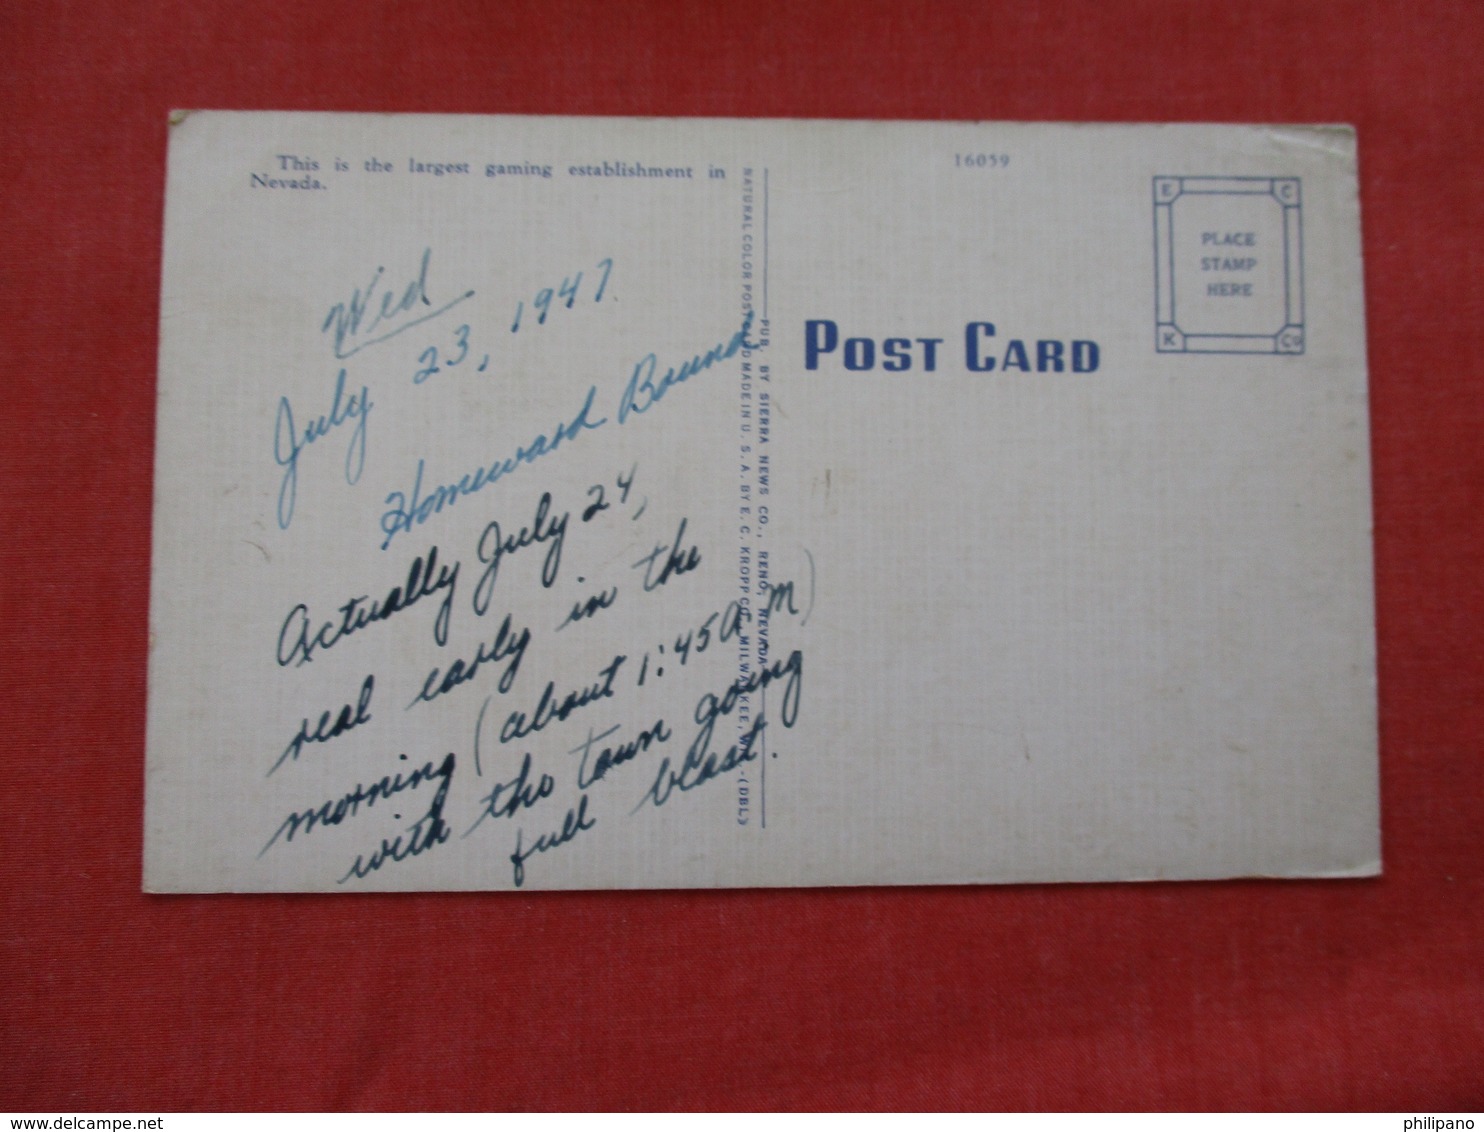 This is the largest gaming establishment in
Nevada.
Wed
July 23, 1947
Homeward Bound
Actually July 24,
real early in the
morning (about 1:45 A M)
with the town going
full blast.
NATURAL COLOR POST CARD MADE IN U. S. A. BY E. C. KROPP CO., MILWAUKEE, WIS.-(DBL)
PUB. BY SIERRA NEWS CO., RENO, NEVADA
16059
POST CARD
E C
PLACE
STAMP
HERE
K Co
delcampe.net
philipano